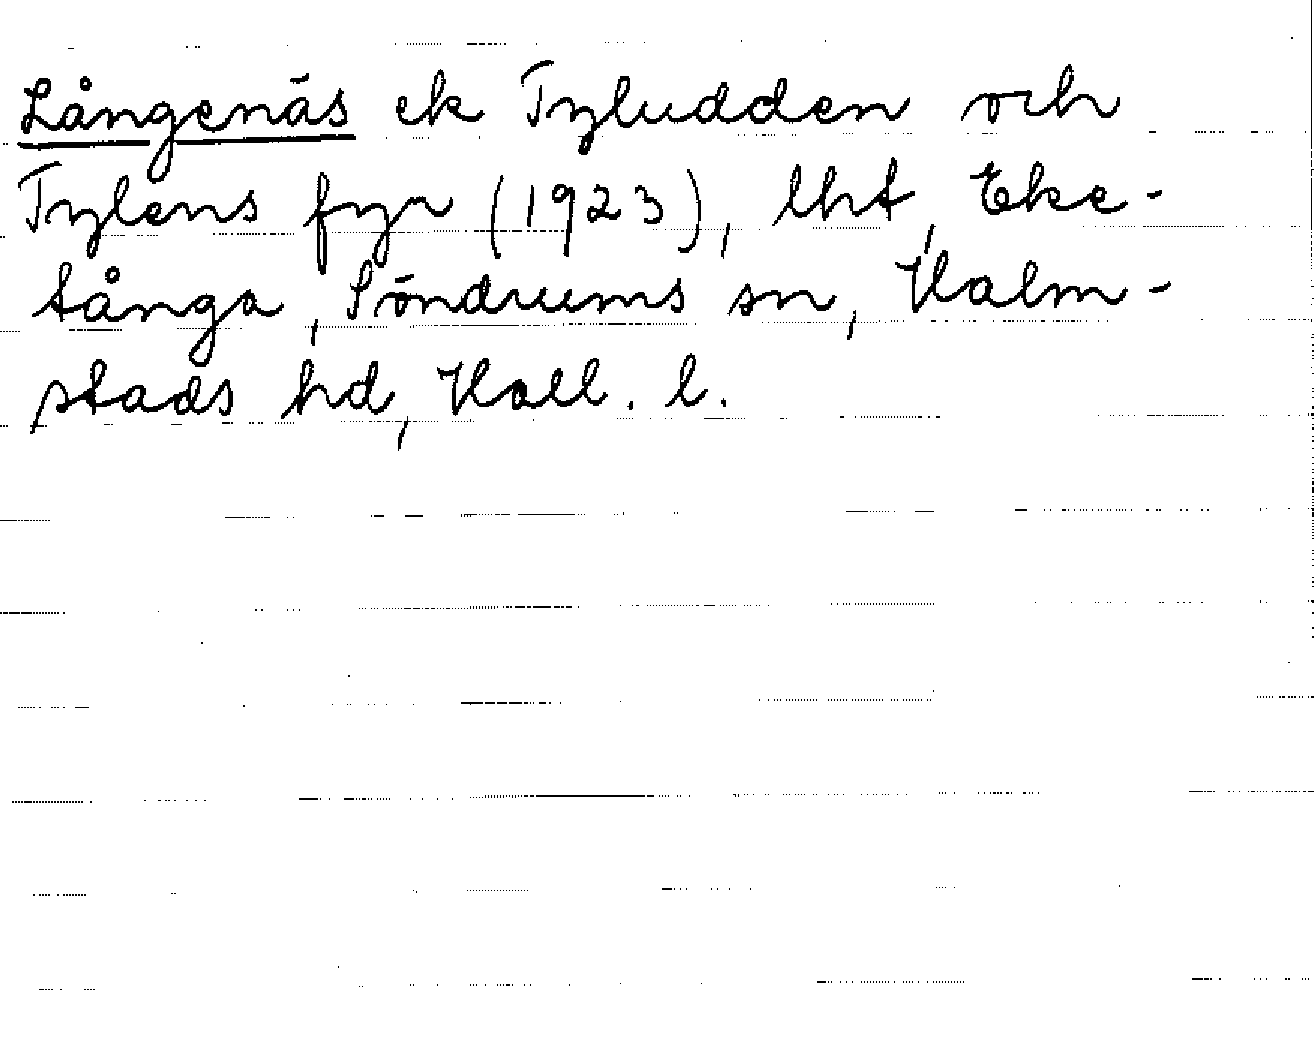 Långenäs ek Tyludden och
Tylens fyr (1923), lht, Eke-
tånga, Söndrums sn, Halm-
stads hd, Hall. l.